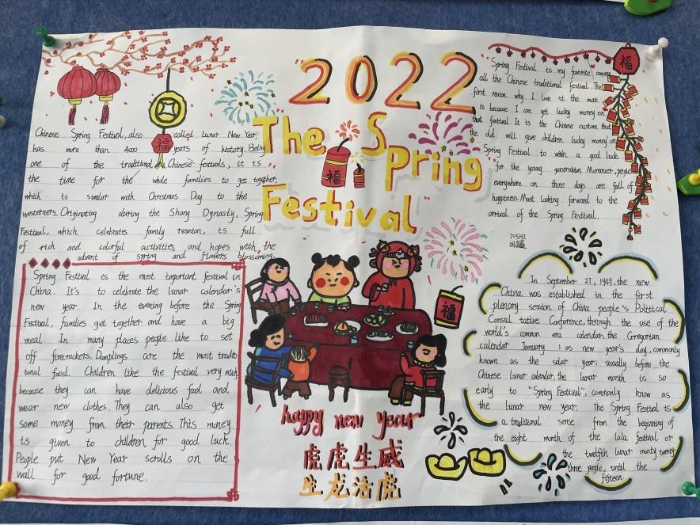 2022
The Spring
Festival
Chinese Spring Festival, also called lunar New Year,
has more than 4000 years of history. Being
one of the traditional Chinese festivals, it is
the time for the whole families to get together,
which is similar with Christmas Day to the
westerners. Originating during the Shang Dynasty, Spring
Festival, which celebrates family reunion, is full
of rich and colorful activities, and hopes with the
advent of spring and flowers blossoming.
Spring Festival is the most important festival in
China. It's to celebrate the lunar calendar's
new year. In the evening before the Spring
Festival, families get together and have a big
meal. In many places people like to set
off firecrackers. Dumplings are the most tradi-
tional food. Children like the festival very much
because they can have delicious food and
wear new clothes. They can also get
some money from their parents. This money
is given to children for good luck.
People put New Year scrolls on the
wall for good fortune.
Spring Festival is my favorite among
all the Chinese traditional festival. The
first reason why I love it the most
is because I can get lucky money on
that festival. It is the Chinese custom that
the old will give children lucky money on
Spring Festival to wish a good luck
for the young generation. Moreover, people
everywhere on three days are full of
happiness. Most looking forward to the
arrival of the Spring Festival.
In September 27, 1949, the new
China was established in the first
plenary session of China people's Political
Consultative Conference, through the use of the
world's common era calendar, the Gregorian
calendar January 1 as new year's day, commonly
known as the solar year, usually before the
Chinese lunar calendar, the lunar month is so
early to "Spring Festival", commonly known as
the lunar new year. The Spring Festival is
a traditional sense from the beginning of
the eight month of the lala festival or
the twelfth lunar month twenty
three people, until the
fifteen
福
福
福
福
福
happy new year
虎虎生威
生龙活虎